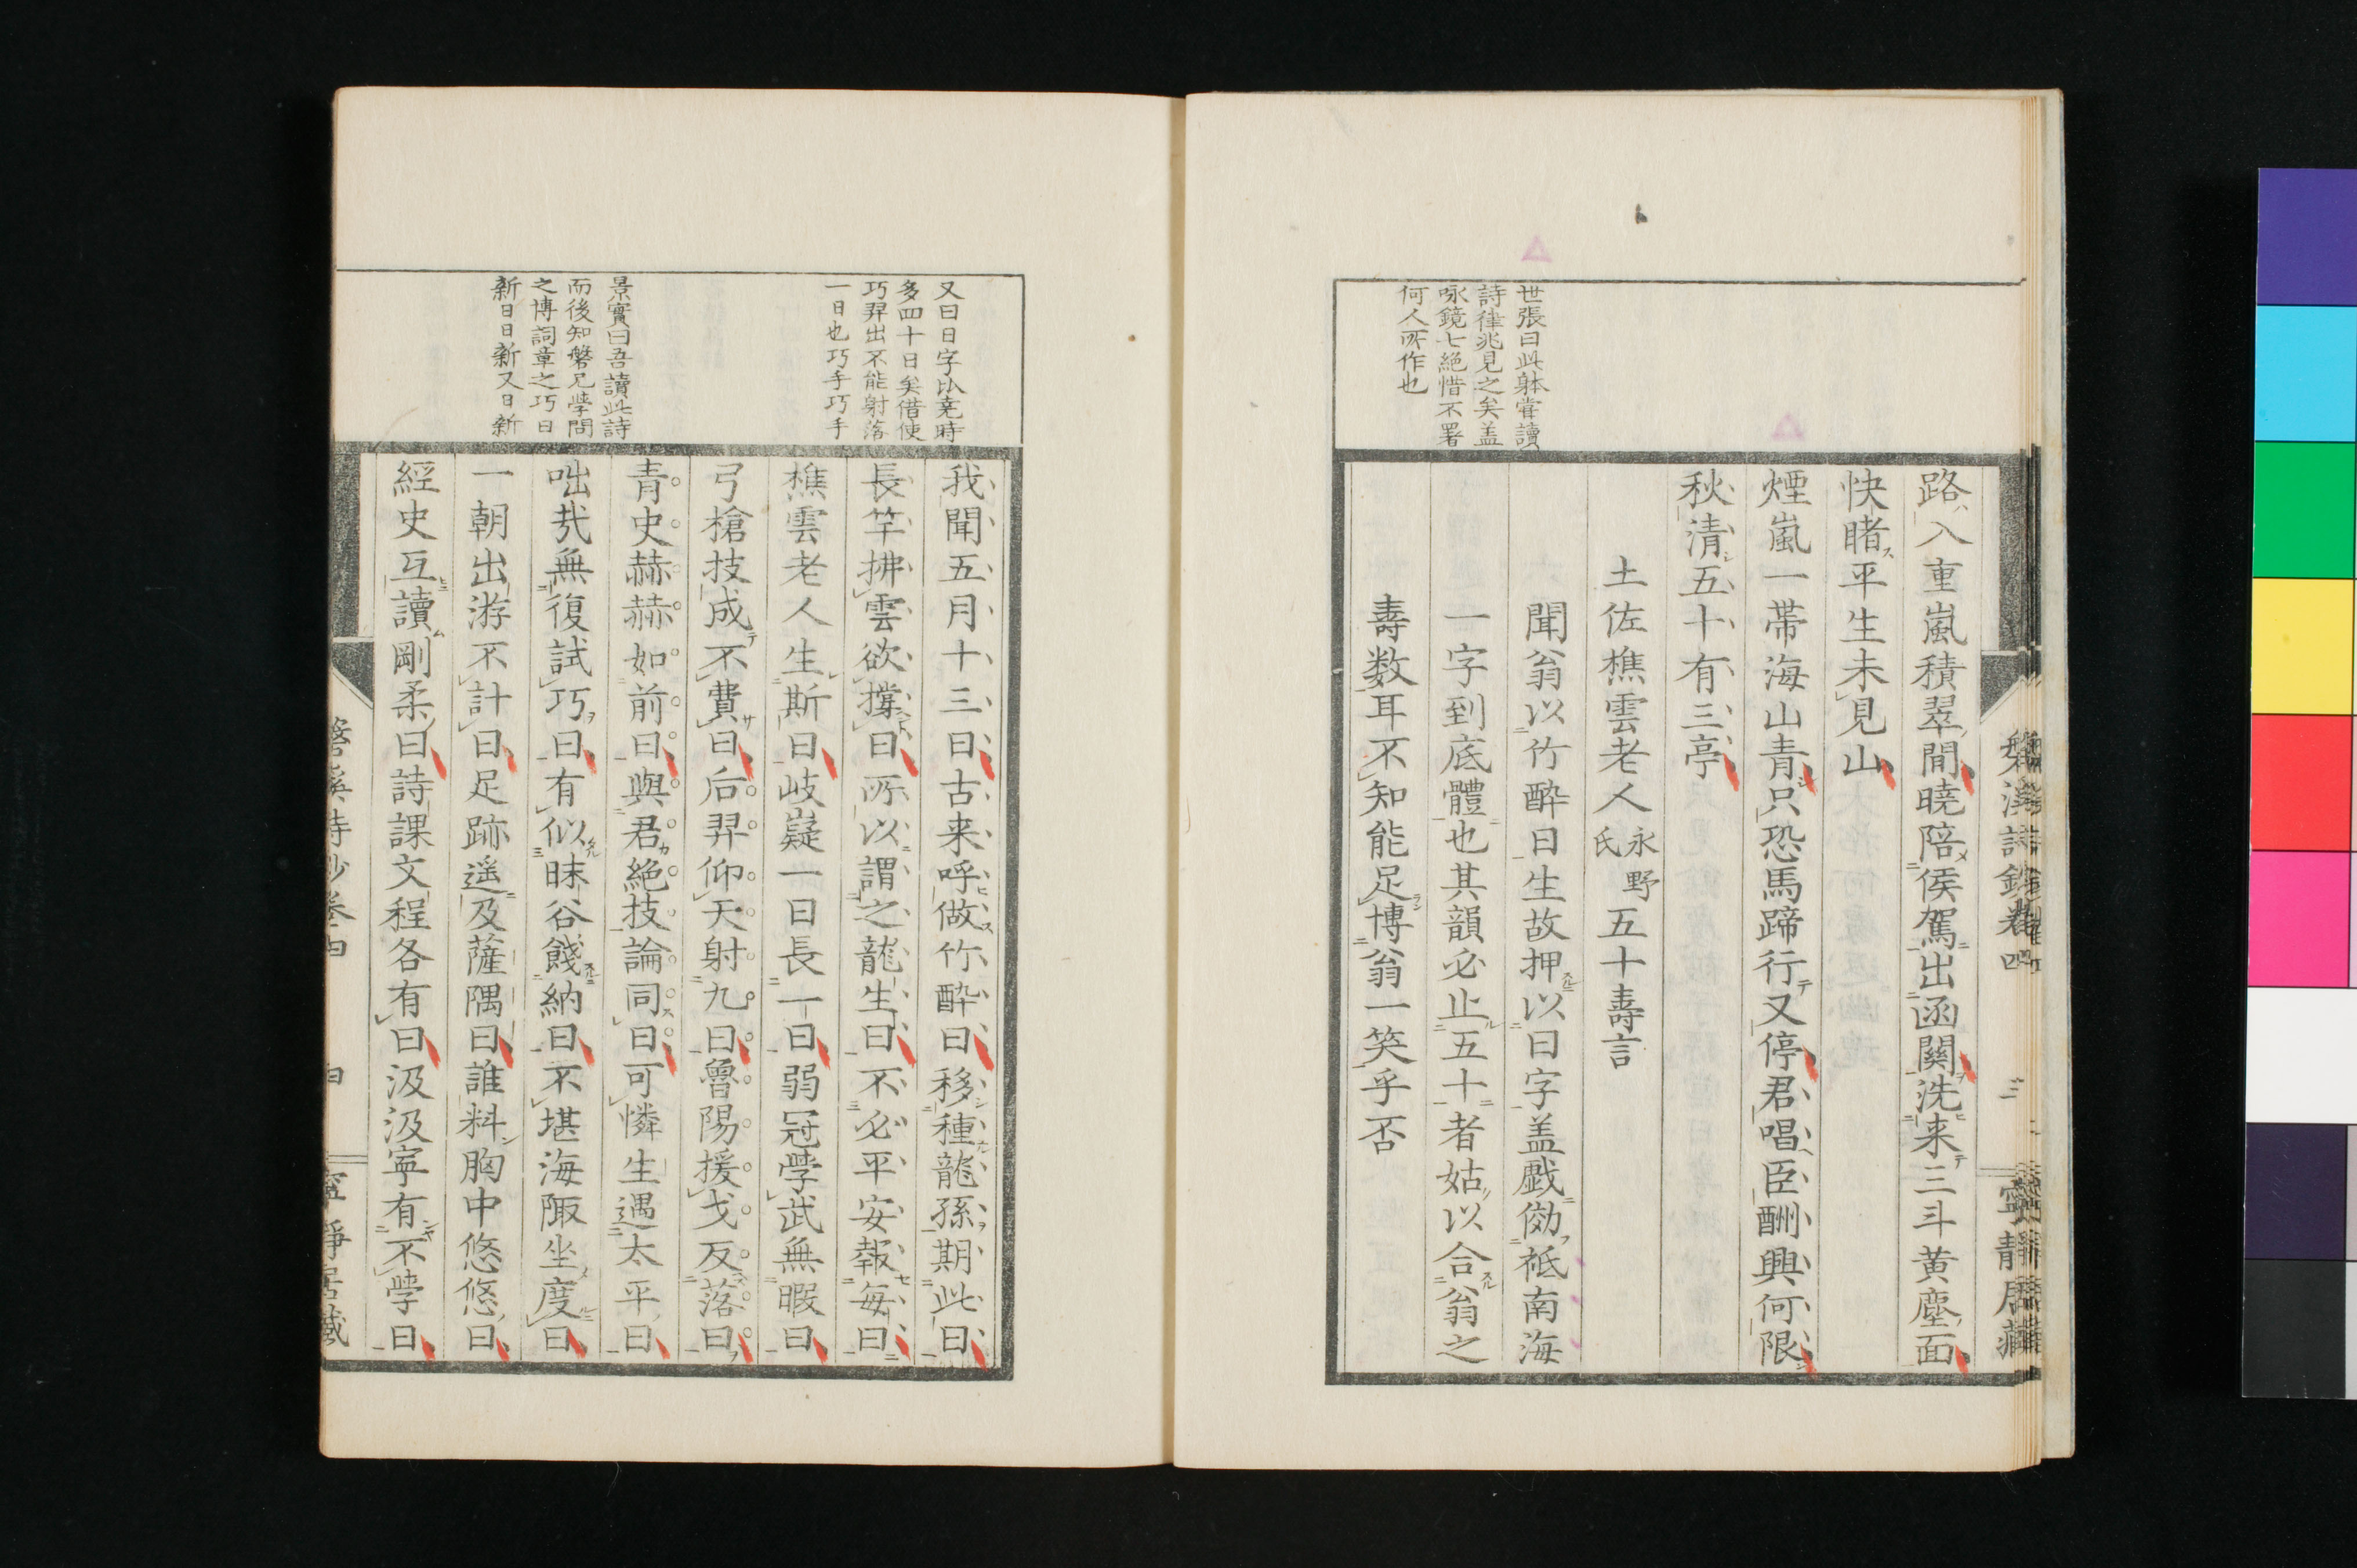 世張曰此躰嘗讀
詩律兆見之矣盖
咏鏡七絶惜不署
何人所作也
路入重嵐積翠間曉陪侯駕出函關洗来三斗黄塵面
快睹平生未見山
煙嵐一帯海山青只恐馬蹄行又停君唱臣酬興何限
秋清五十有三亭
土佐樵雲老人永野氏五十壽言
聞翁以竹酔日生故押以日字盖戯傚祗南海
一字到底體也其韻必止五十者姑以合翁之
壽数耳不知能足博翁一笑乎否
又曰日字比尭時
多四十日矣借使
巧羿出不能射落
一日也巧手巧手
景實曰吾讀此詩
而後知磐兄學問
之博詞章之巧日
新日日新又日新
我聞五月十三日古来呼做竹酔日移種龍孫期此日
長竿拂雲欲撐日所以謂之龍生日不必平安報毎日
樵雲老人生斯日岐嶷一日長一日弱冠學武無暇日
弓槍技成不費日后羿仰天射九日魯陽援戈反落日
青史赫赫如前日與君絶技論同日可憐生遇太平日
咄哉無復試巧日有似昧谷餞納日不堪海陬坐度日
一朝出游不計日足跡遥及薩隅日誰料胸中悠悠日
經史互讀剛柔日詩課文程各有日汲汲寧有不學日